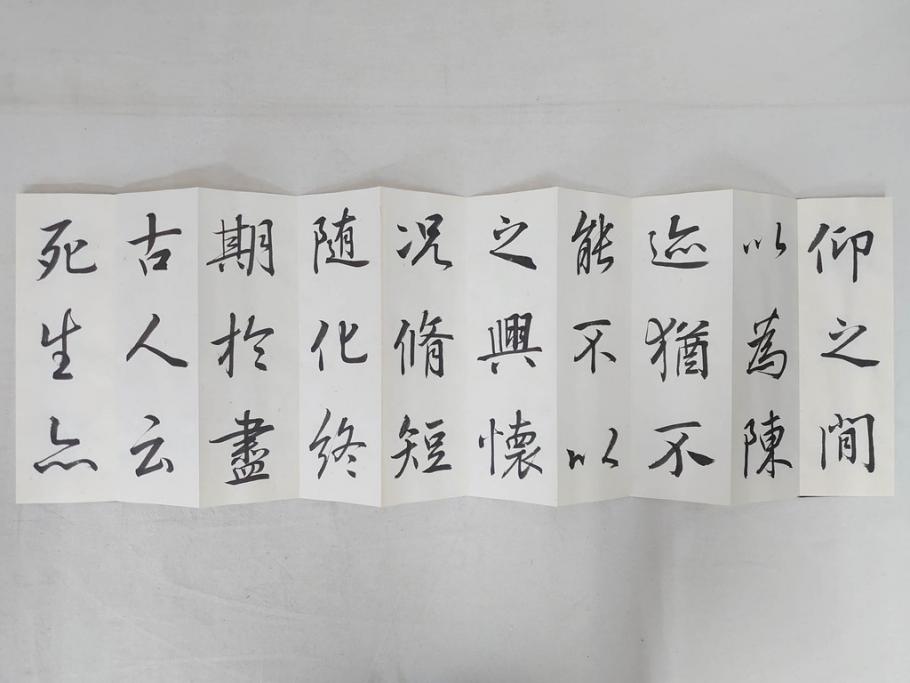 仰之閒
以為陳
迹猶不
能不以
之興懷
況脩短
随化終
期於盡
古人云
死生亦